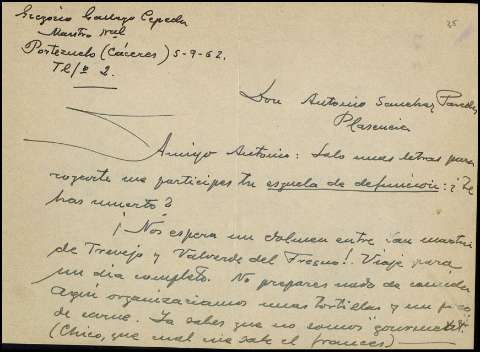 Gregorio Gallego Cepeda
Maestro Nal
Portezuelo (Cáceres) 5-9-62.
Tl/º 2.
25
Don Antonio Sanchez Paredes
Plasencia
Amigo Antonio: Solo unas letras para
rogarte me participes tu esquela de defunción: ¿Te
has muerto?
¡Nos espera un dolmen entre San Martin
de Trevejo y Valverde del Fresno!. Viaje para
un dia completo. No prepares nada de comida
Aqui organizariamos unas tortillas y un poco
de carne. Ya sabes que no somos gourmets.
(Chico, que mal me sale el frances)